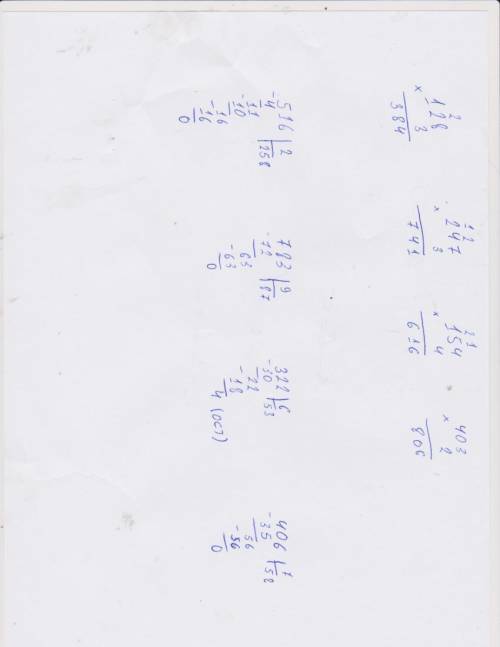 2
× 128
3
384
12
× 247
3
741
21
× 154
4
616
× 403
2
806
-516 | 2
4 | 258
-11
10
-16
16
0
-783 | 9
72 | 87
-63
63
0
-322 | 6
30 | 53
-22
18
4 (ост)
-406 | 7
35 | 58
-56
56
0